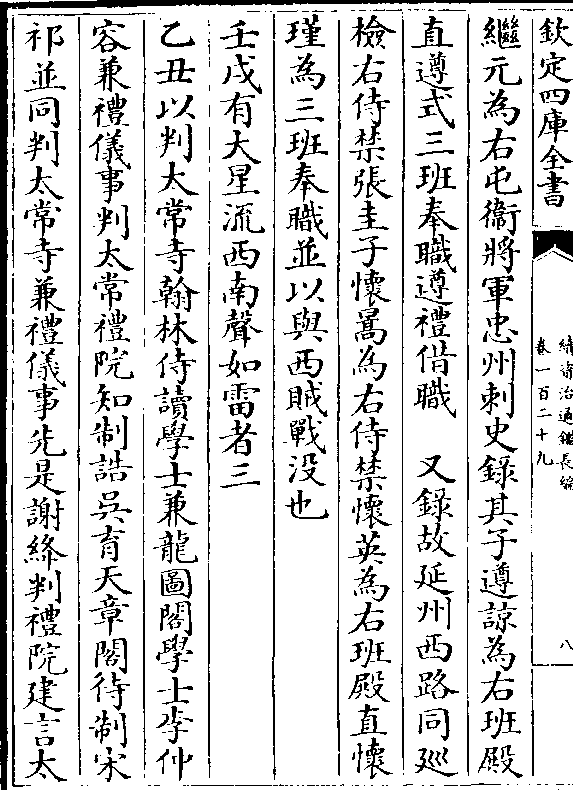 欽定四庫全書
續資治通鑑長編
卷一百二十九
八
繼元為右屯衞將軍忠州刺史録其子遵諒為右班殿
直遵式三班奉職遵禮借職　又録故延州西路同廵
檢右侍禁張圭子懷暠為右侍禁懷英為右班殿直懷
瑾為三班奉職並以與西賊戰没也
壬戌有大星流西南聲如雷者三
乙丑以判太常寺翰林侍讀學士兼龍圖閣學士李仲
容兼禮儀事判太常禮院知制誥吳育天章閣待制宋
祁並同判太常寺兼禮儀事先是謝絳判禮院建言太